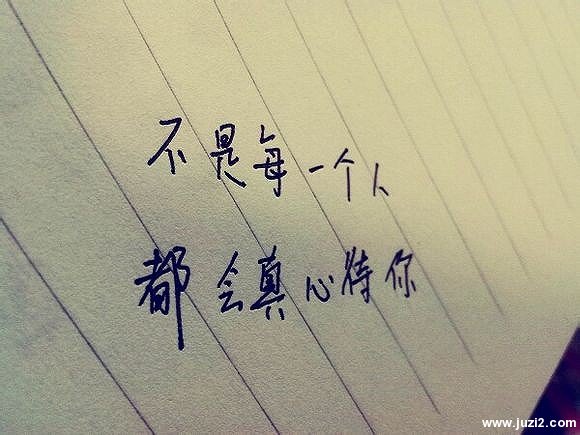 不是每一个人
都会真心待你
www.juzi2.com